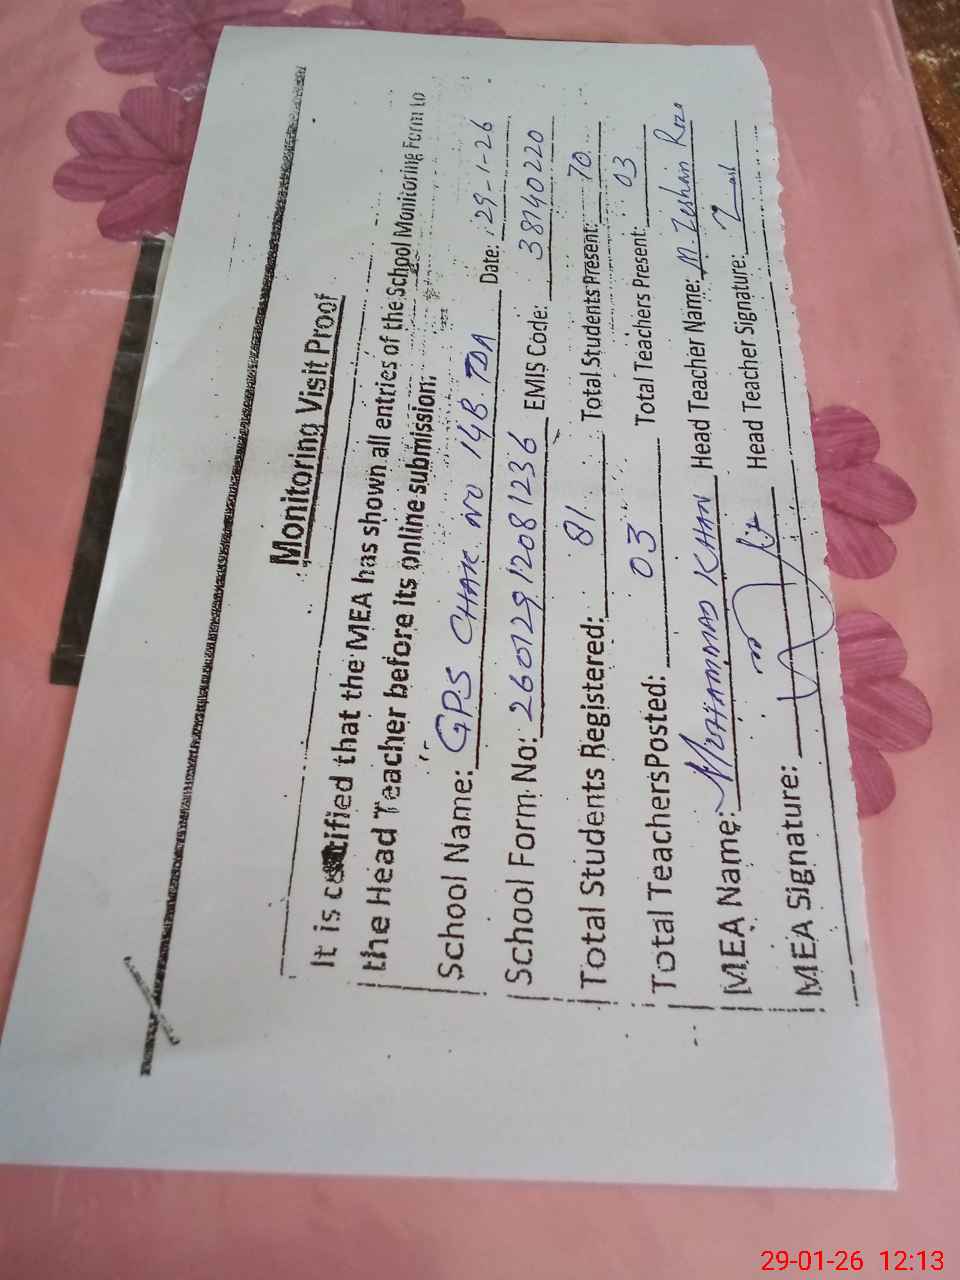 Monitoring Visit Proof
It is certified that the MEA has shown all entries of the School Monitoring Form to
the Head Teacher before its online submission.
School Name: GPS CHAK NO 14B TDA Date: 29-1-26
School Form No: 26012912081236 EMIS Code: 38740220
Total Students Registered: 81 Total Students Present: 70
Total TeachersPosted: 03 Total Teachers Present: 03
MEA Name: MUHAMMAD KHAN Head Teacher Name: M. Zeshan Raza
MEA Signature: Head Teacher Signature:
29-01-26 12:13